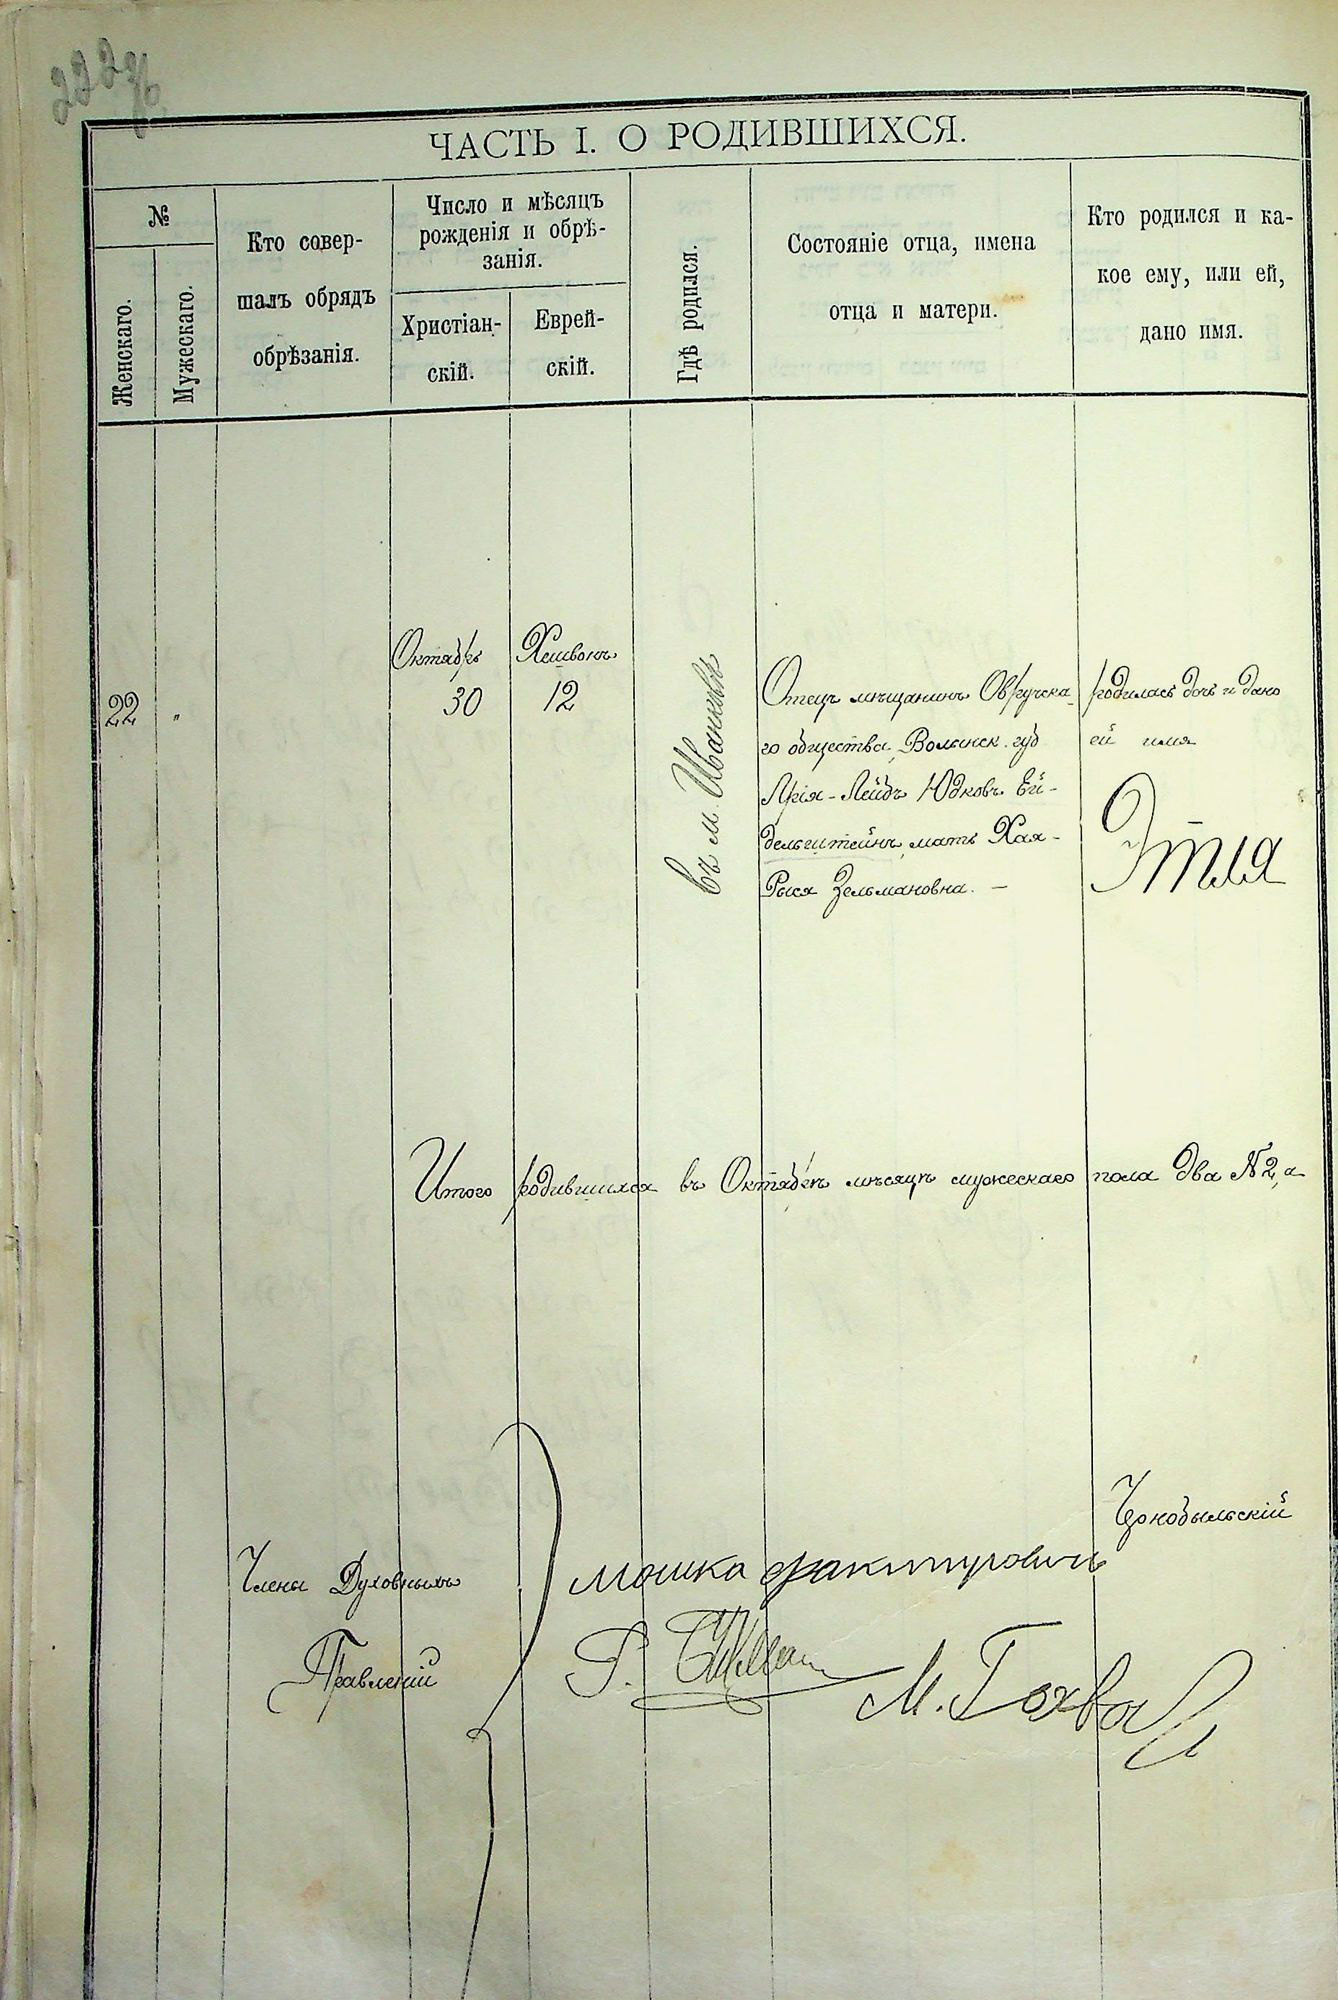 222
ЧАСТЬ I. О РОДИВШИХСЯ.
№
Женскаго.
Мужескаго.
Кто совер-
шалъ обрядъ
обрѣзанія.
Число и мѣсяцъ
рожденія и обрѣ-
занія.
Христіан-
скій.
Еврей-
скій.
Гдѣ родился.
Состояніе отца, имена
отца и матери.
Кто родился и ка-
кое ему, или ей,
дано имя.
22
"
Октябрь
30
Хешвонъ
12
въ м. Иванковѣ
Отецъ мѣщанинъ Овручска-
го общества Волынск. губ
Арія-Лейбъ Юдковъ Ей-
дельштейнъ, мать Хая-
Рыся Зельмановна. —
родилась дочь и дано
ей имя
Этля
Итого родившихся въ Октябрѣ мѣсяцѣ мужескаго пола два № 2, а
Чернобыльскій
Члены Духовныхъ
Правленій
Мошка
М.